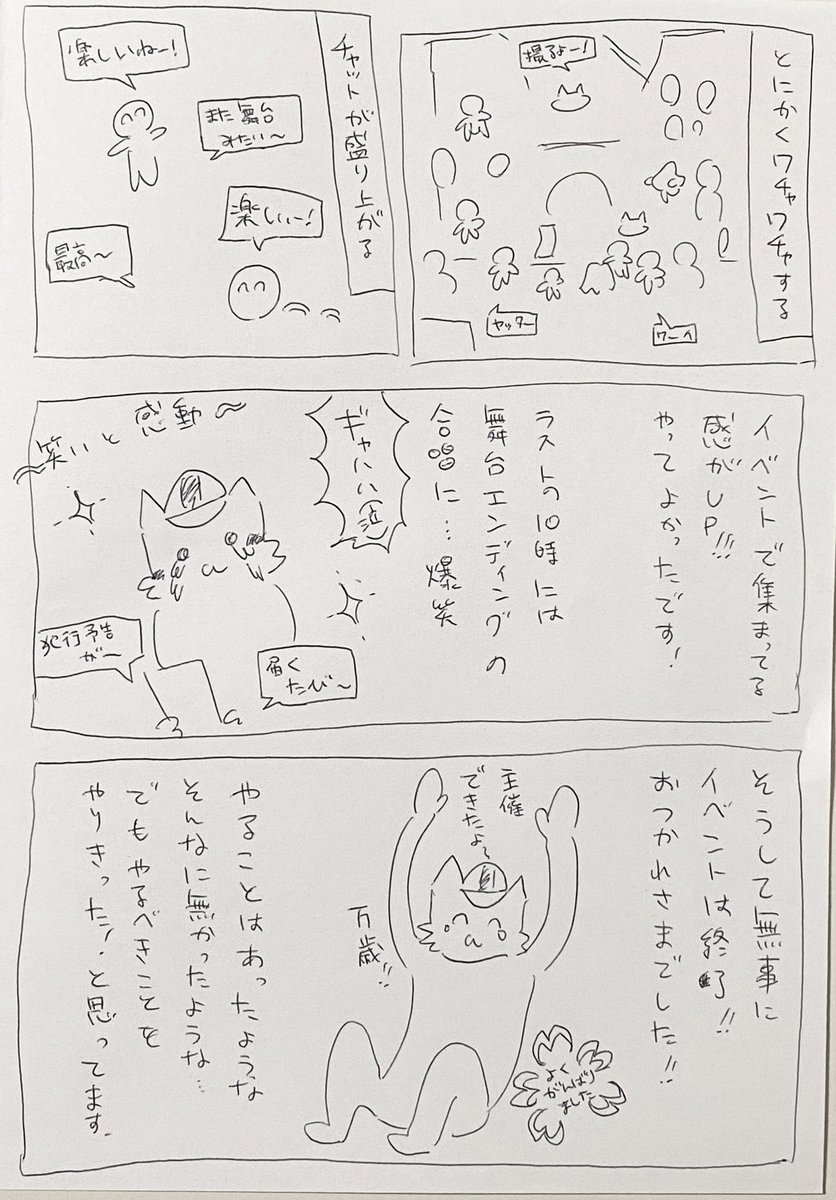 とにかくワチャワチャする
撮るよー!
ヤッター
ワーイ
チャットが盛り上がる
楽しいねー!
また舞台
みたい〜
楽しいー!
最高〜
イベントで集まってる
感がUP!!!
やってよかったです!
ラストの10時には
舞台エンディングの
合唱に…爆笑
ギャハハ(泣)
〜笑いと感動〜
犯行予告
がー
届く
たび〜
そうして無事に
イベントは終了!!
おつかれさまでした!!
主催
できたよ〜
万歳!!
よく
がんばり
ました
やることはあったような
そんなに無かったような…
でもやるべきことを
やりきった!と思ってます.